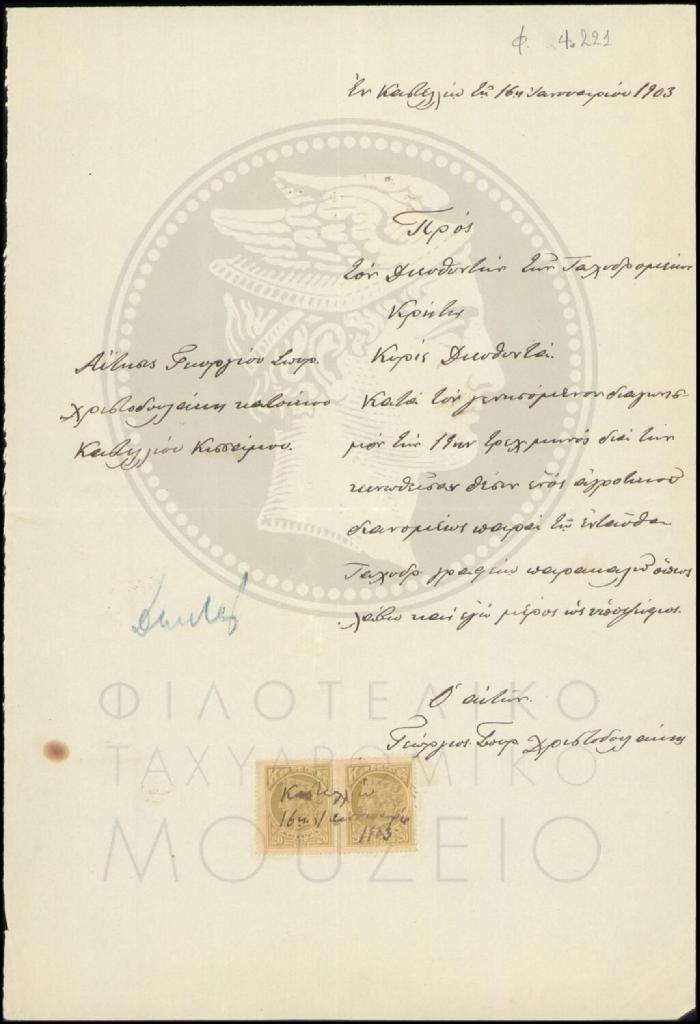 Φ. 4221
Ἐν Καστελλίῳ τῇ 16ῃ Ἰανουαρίου 1903
Πρὸς
τὸν Διευθυντὴν τῶν Ταχυδρομείων
Κρήτης
Αἴτησις Γεωργίου Σπυρ.
Χριστοδουλάκη κατοίκου
Καστελλίου Κισσάμου.
Κύριε Διευθυντά.
Κατὰ τὸν γενησόμενον διαγωνισ-
μὸν τὴν 19ην τρεχ. μηνὸς διὰ τὴν
κενωθεῖσαν θέσιν ἑνὸς ἀγροτικοῦ
διανομέως παρὰ τῷ ἐνταῦθα
Ταχυδρ. γραφείῳ παρακαλῶ ὅπως
λάβω καὶ ἐγὼ μέρος ὡς ὑποψήφιος.
Ὁ αἰτῶν
Γεώργιος Σπυρ. Χριστοδουλάκης
Καστελλίῳ
16ῃ Ἰανουαρίου
1903
ΦΙΛΟΤΕΛΙΚΟ
ΤΑΧΥΔΡΟΜΙΚΟ
ΜΟΥΣΕΙΟ